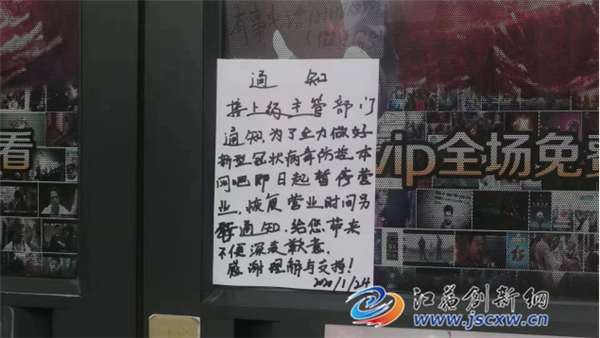 通知
接上级主管部门
通知,为了全力做好
新型冠状病毒防控,本
网吧即日起暂停营
业,恢复营业时间另
行通知,给您带来
不便深表歉意,
感谢理解与支持!
2020/1/24
看
vip全场免费
江苏创新网
www.jscxw.cn